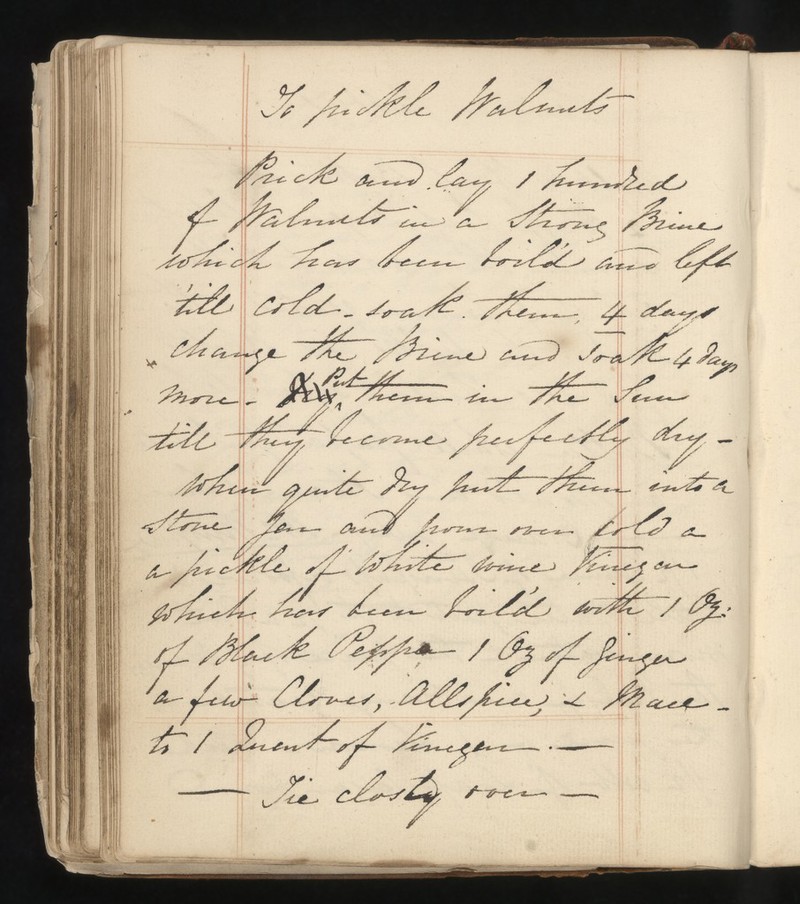 To pickle Walnuts
Prick and lay 1 hundred
of Walnuts in a Strong Brine
which has been boil'd and left
'till cold - soak them, 4 days
change the Brine and soak 4 days
more - Put them in the Sun
till they become perfectly dry -
When quite dry put them into a
stone Jar and pour over cold a
a pickle of White wine Vinegar
which has been boil'd with 1 Oz:
of Black Pepper 1 Oz of Ginger
a few Cloves, Allspice, & Mace -
to 1 Quart of Vinegar . —
— Tie closely over —